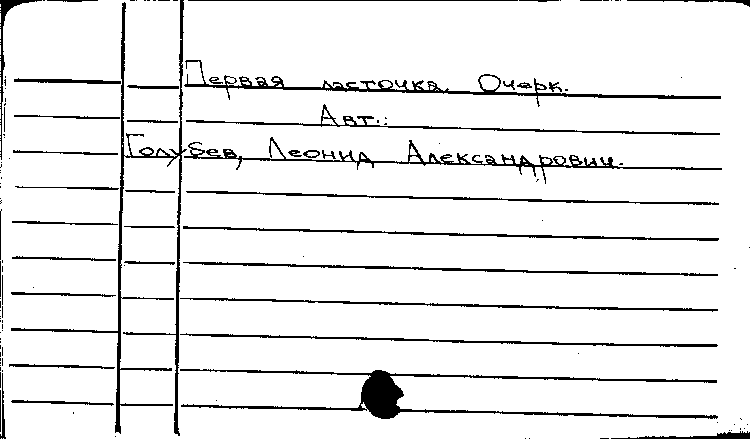 Первая ласточка. Очерк.
Авт.:
Голубев, Леонид Александрович.